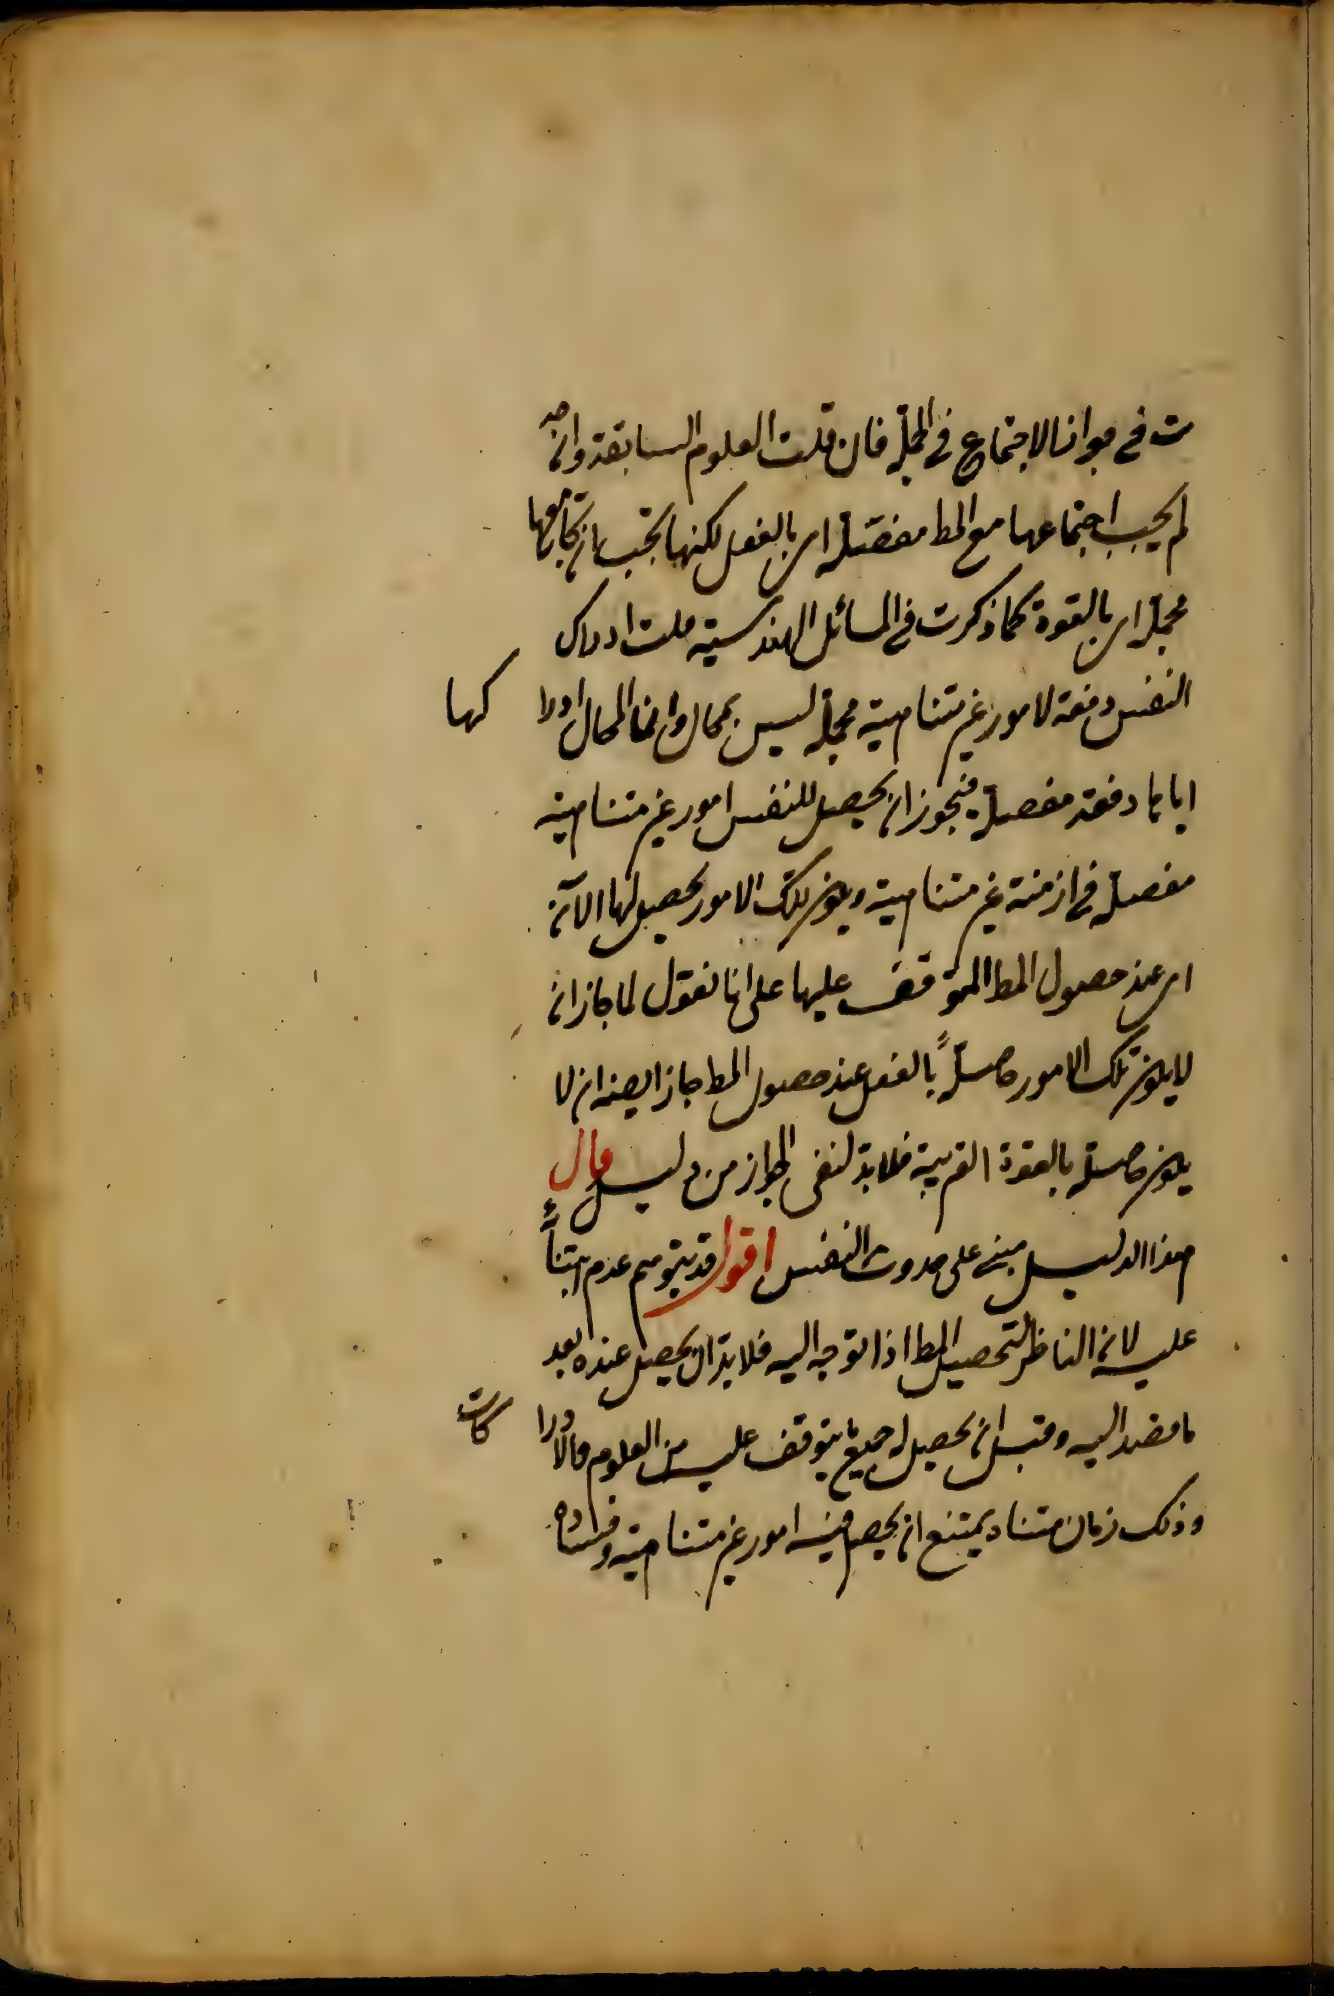 ت في جواز الاجتماع في الجملة فان قلت العلوم السابقة وان
لم يجب اجتماعها مع المط مفصلة اى بالفعل لكنها تجب ان تجامعها
مجملة اى بالقوة كما ذكرت في المسائل الهندسية قلت ادراك
النفس دفعة لامور غير متناهية مجملة ليس بمحال وانما المحال ادرا كها
اياها دفعة مفصلة فيجوز ان يحصل للنفس امور غير متناهية
مفصلة في ازمنة غير متناهية ويكون تلك الامور يحصل لها الآن
اى عند حصول المط الموقوف عليها على انا نقول لما جاز ان
لا يكون تلك الامور حاصلة بالفعل عند حصول المط جاز ايضا ان لا
يكون حاصلة بالقوة القريبة فلا بد لنفى الجواز من دليل قال
هذا الدليل مبنى على حدوث النفس اقول قد يتوهم عدم ابتنائه
عليه لان الناظر لتحصيل المط اذا توجه اليه فلا بد ان يحصل عنده بعد
ما قصد اليه وقبل ان يحصل له جميع ما يتوقف عليه من العلوم والادرا كات
وذلك زمان متناه يمتنع ان يحصل فيه امور غير متناهية وفساده